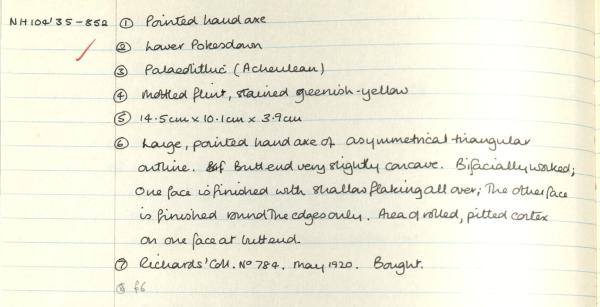 NH104'35-852 ① Pointed hand axe
② Lower Pokesdown
③ Palaeolithic (Acheulean)
④ Mottled flint, stained greenish-yellow
⑤ 14.5cm x 10.1cm x 3.9cm
⑥ Large, pointed hand axe of asymmetrical triangular
outline. Butt end very slightly concave. Bifacially worked;
One face is finished with shallow flaking all over; The other face
is finished round The edges only. Area of rolled, pitted cortex
on one face at butt end.
⑦ Richards' Coll. No 784. May 1920. Bought.
⑧ £6